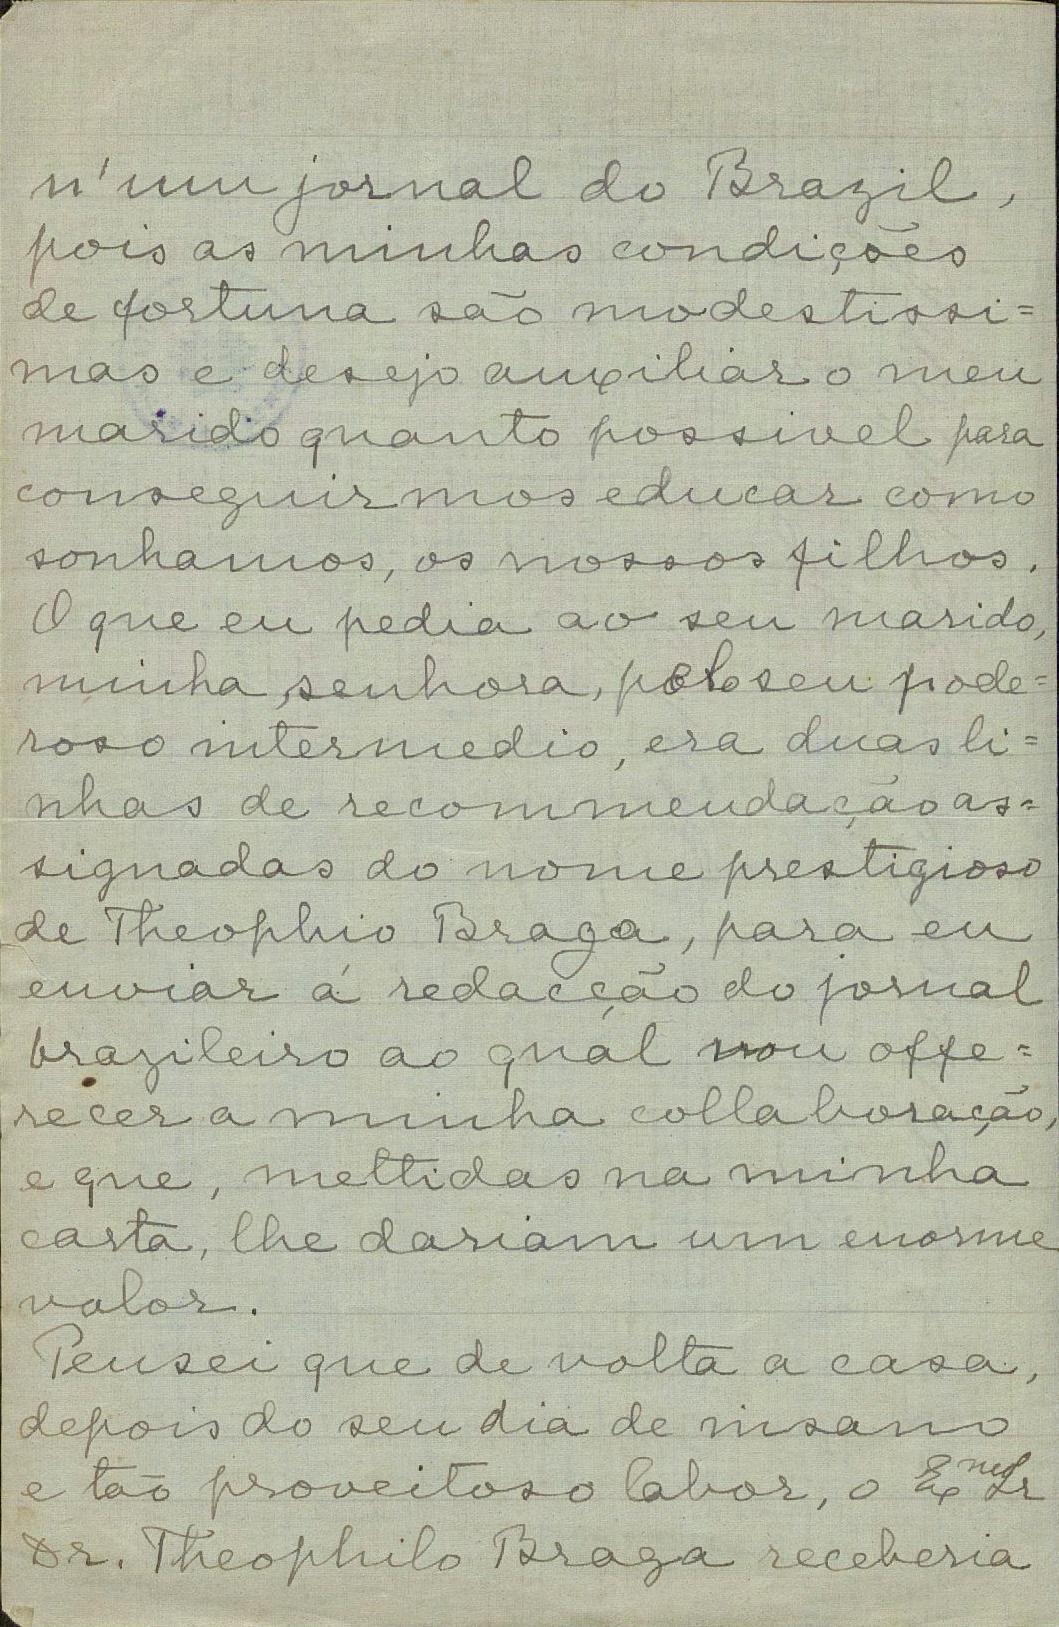 n'um jornal do Brazil,
pois as minhas condições
de fortuna são modestissi=
mas e desejo auxiliar o meu
marido quanto possivel para
conseguirmos educar como
sonhamos, os nossos filhos.
O que eu pedia ao seu marido,
minha senhora, pelo seu pode=
roso intermedio, era duas li=
nhas de recommendação as=
signadas do nome prestigioso
de Theophio Braga, para eu
enviar á redacção do jornal
brazileiro ao qual vou offe=
recer a minha collaboração,
e que, mettidas na minha
carta, lhe dariam um enorme
valor.
Pensei que de volta a casa,
depois do seu dia de insano
e tão proveitoso labor, o Exmo Sr
Dr. Theophilo Braga receberia